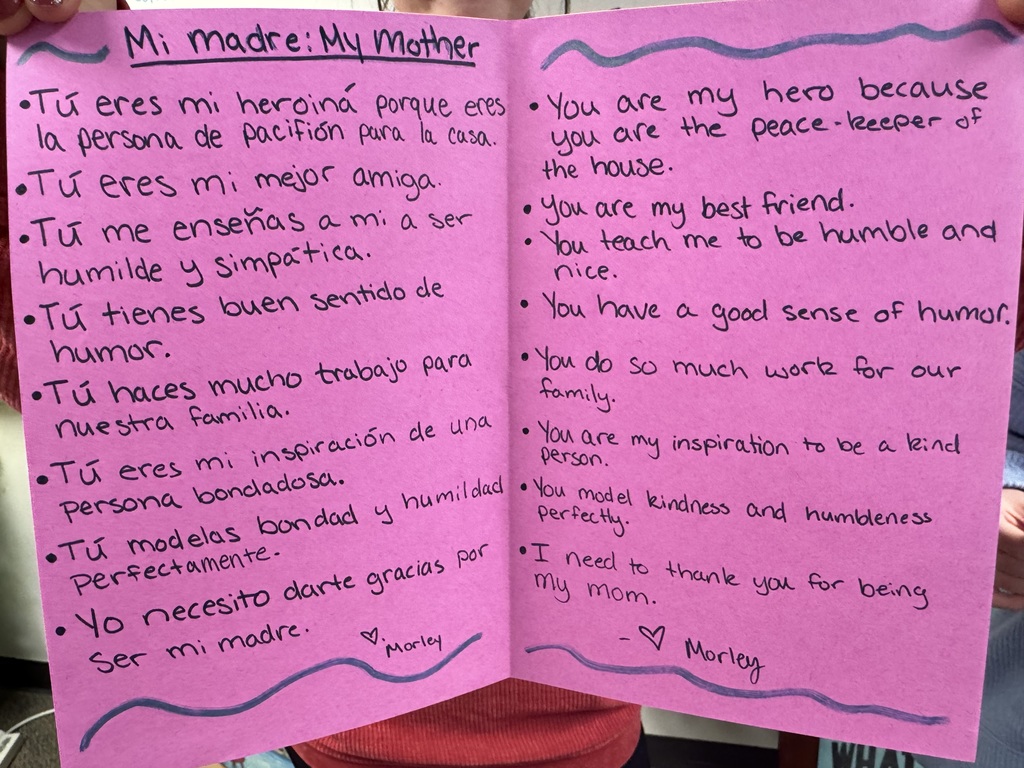 Mi madre: My Mother
•Tú eres mi heroiná porque eres
la persona de pacifión para la casa.
•Tú eres mi mejor amiga.
•Tú me enseñas a mi a ser
humilde y simpática.
•Tú tienes buen sentido de
humor.
•Tú haces mucho trabajo para
nuestra familia.
•Tú eres mi inspiración de una
persona bondadosa.
•Tú modelas bondad y humildad
perfectamente.
•Yo necesito darte gracias por
ser mi madre.
♡Morley
•You are my hero because
you are the peace-keeper of
the house.
•You are my best friend.
•You teach me to be humble and
nice.
•You have a good sense of humor.
•You do so much work for our
family.
•You are my inspiration to be a kind
person.
•You model kindness and humbleness
perfectly.
•I need to thank you for being
my mom.
-♡ Morley
WHAT